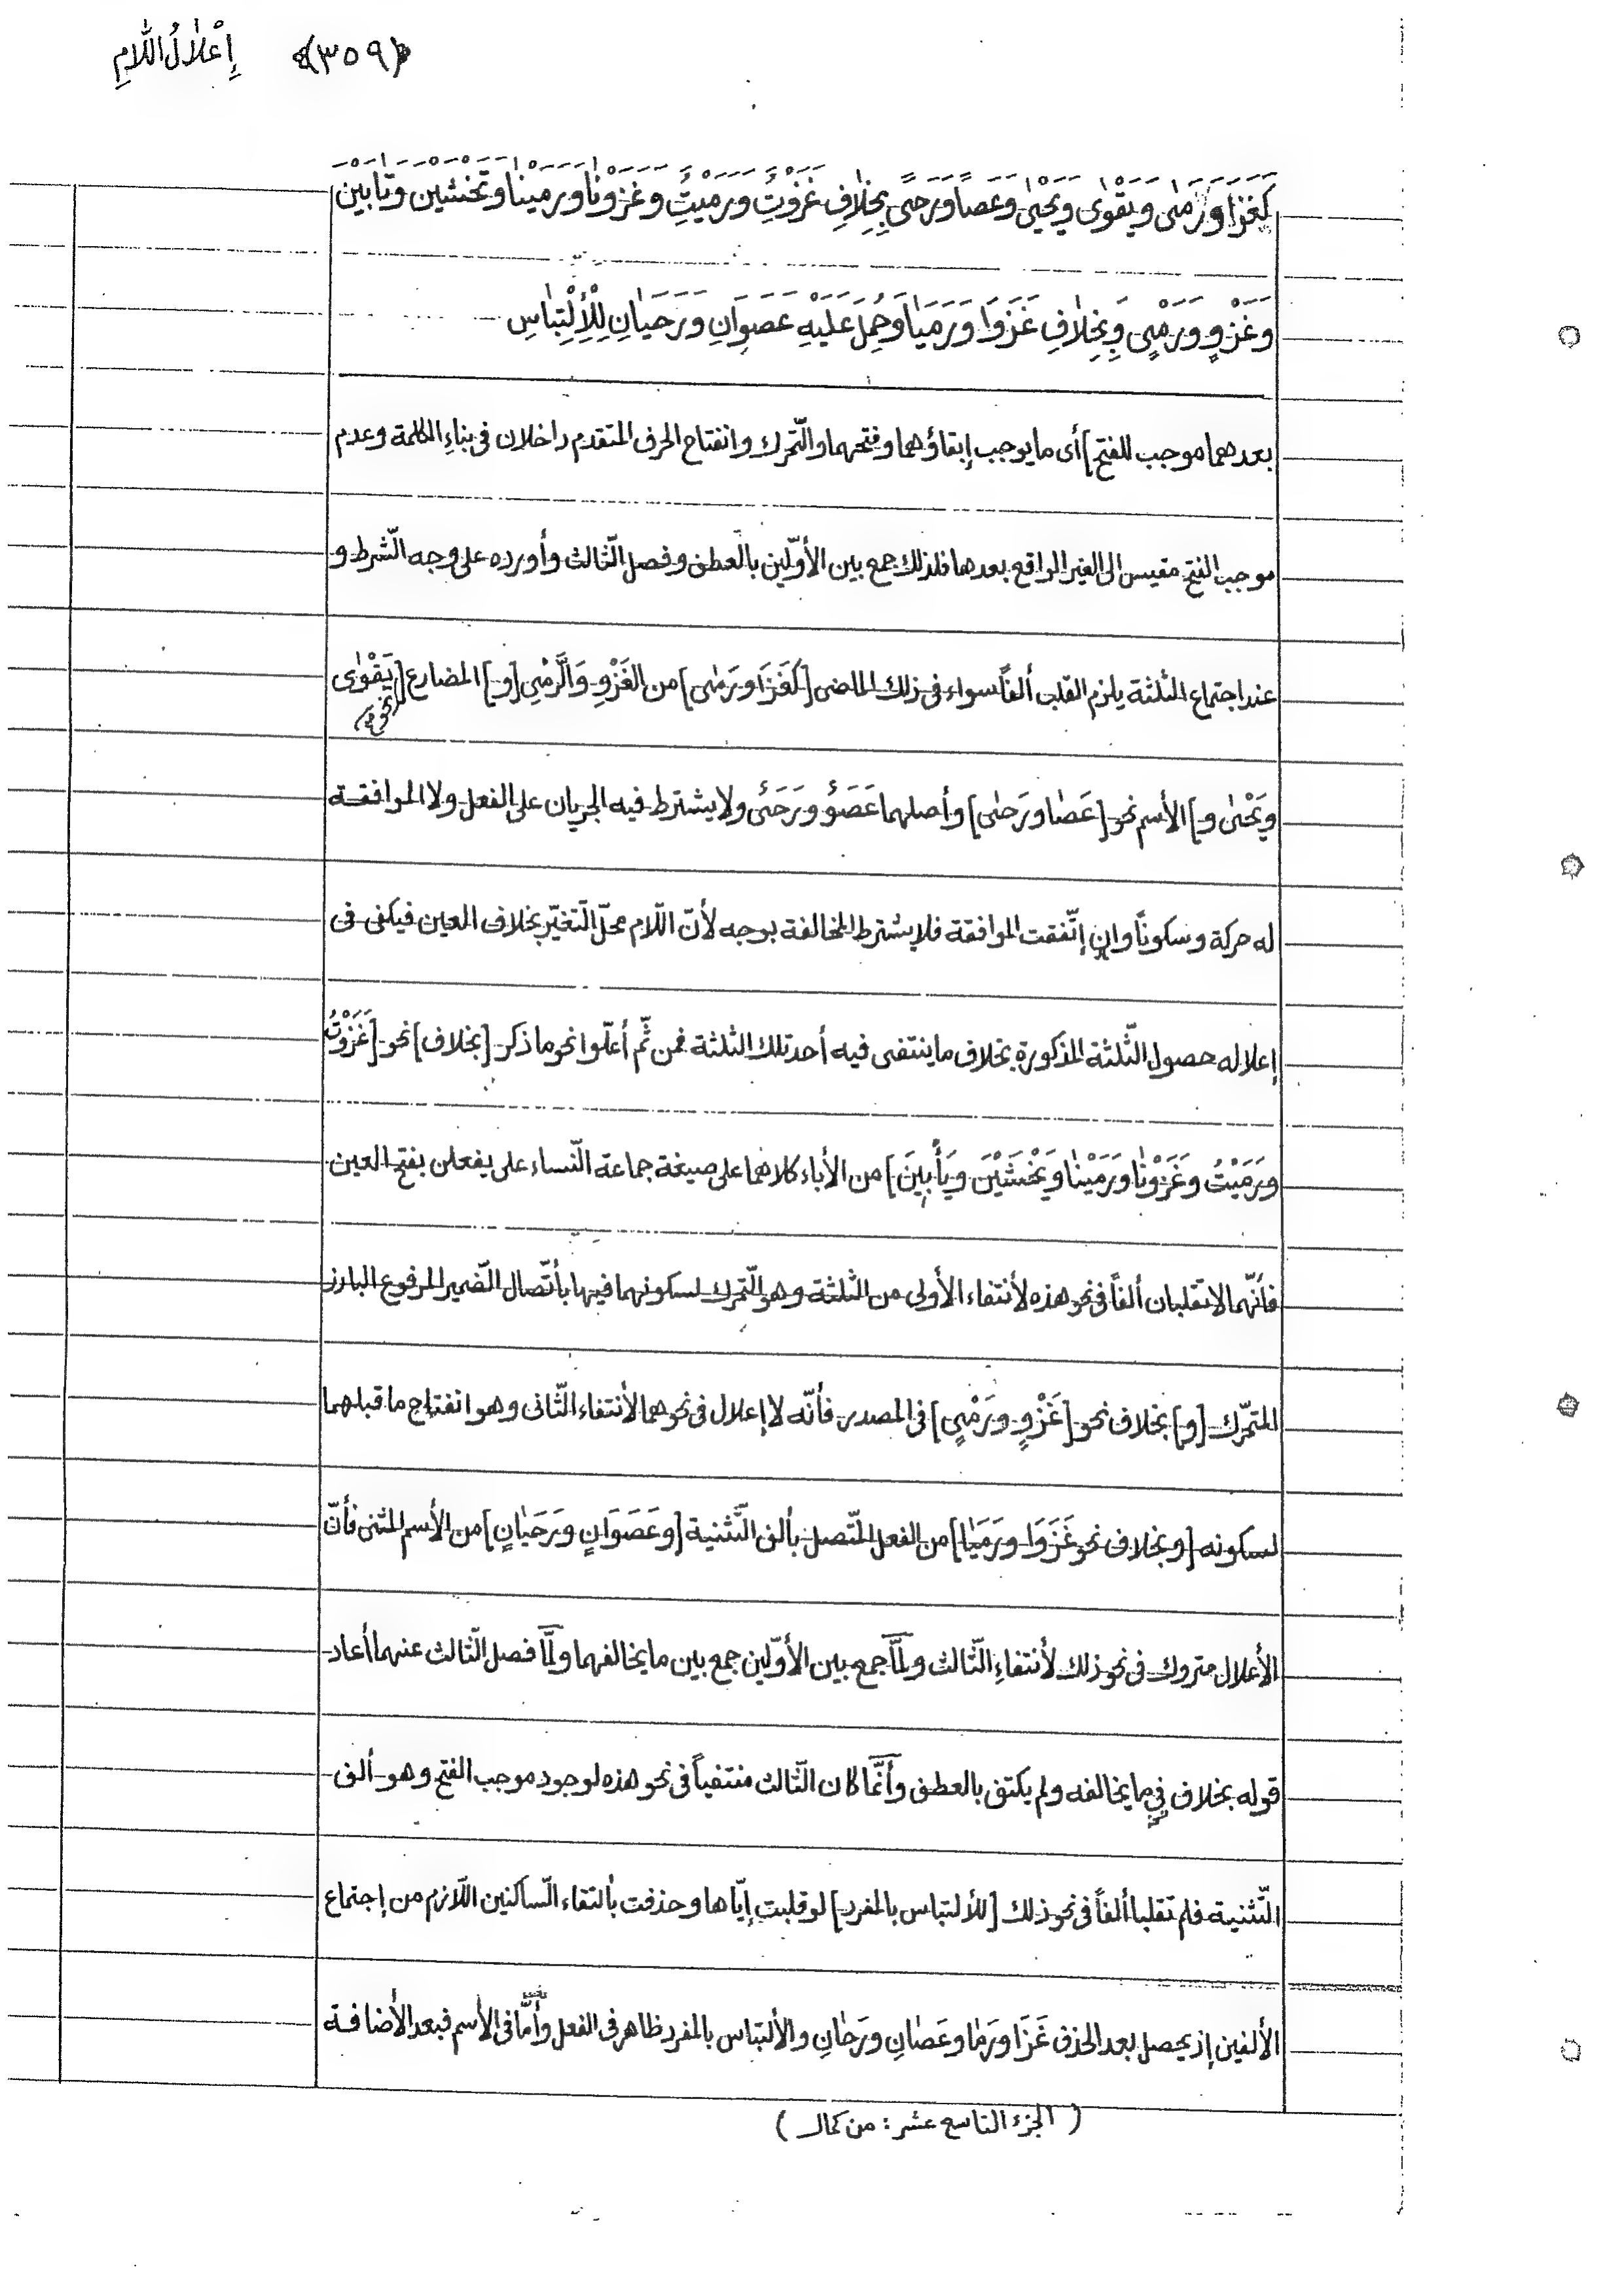 إِعْلَالُ اللَّامِ ﴿٣٥٩﴾
كَغَزَا وَرَمَىٰ وَيَقْوَىٰ وَيَحْيَىٰ وَعَصًا وَرَحًى بِخِلَافِ غَزَوْتُ وَرَمَيْتُ وَغَزَوْنَا وَرَمَيْنَا وَتَخْشَيْنَ وَتَابَيْنَ
وَغَزْوٍ وَرَمْىٍ وَبِخِلَافِ غَزَوَا وَرَمَيَا وَحُمِلَ عَلَيْهِ عَصَوَانِ وَرَحَيَانِ لِلْأِلْتِبَاسِ
بعدهما موجب للفتح] أى ما يوجب إبقاؤهما وفتحهما والتّحرك وانفتاح الحرف المتقدم داخلان فى بناءِ الكلمة وعدم
موجب الفتح مقيس الى الغير الواقع بعدها فلذلك جمع بين الأوّلين بالعطف وفصل الثّالث وأورده على وجه الشّرط و
عند اجتماع الثلثة يلزم القلب ألفاً سواء فى ذلك الماضى [كَغَزَا وَرَمىٰ] من الغَزْوِ وَالرَّمْىِ [و] المضارع [نحو يَقْوٰى
وَيَحْيٰى و] الأسم نحو [عَصٰا ورَحٰى] وأصلهما عَصَوٌ ورَحَىٌ ولا يشترط فيه الجريان على الفعل ولا الموافقة
له حركة وسكوناً وان إتّفقت الموافقة فلا يشترط المخالفة بوجه لأنّ اللّام محلّ التّغيّر بخلاف العين فيكفى فى
إعلاله حصول الثّلثة المذكورة بخلاف ما ينتفى فيه أحد تلك الثلثة فمن ثّم أعلّوا نحو ما ذكر [بخلاف] نحو [غَزَوْتُ
ورَمَيْتُ وغَزَوْنٰا ورَمَيْنٰا ويَخْشَيْنَ ويَأْبَيْنَ] من الأباء كلاهما على صيغة جماعة النّساء على يفعلن بفتح العين
فأنّهما لا تقلبان ألفاً فى نحو هذه لأنتفاء الأولى من الثّلثة وهو التّحرك لسكونهما فيها بأتّصال الضّمير المرفوع البارز
المتحرّك [و] بخلاف نحو [غَزْوٍ ورَمْىٍ] فى المصدر فأنّه لا إعلال فى نحوهما لأنتفاء الثّانى وهو انفتاح ما قبلهما
لسكونه [وبخلاف نحو غَزَوَا ورَمَيٰا] من الفعل المتّصل بألف التّثنية [وعَصَوَانِ ورَحَيٰانِ] من الأسم المثنى فأنّ
الأعلال متروك فى نحو ذلك لأنتفاءِ الثّالث ولمّا جمع بين الأوّلين جمع بين ما يخالفهما ولمّا فصل الثّالث عنهما أعاد
قوله بخلاف فى ما يخالفه ولم يكتف بالعطف وأنّما كان الثّالث منتفياً فى نحو هذه لوجود موجب الفتح وهو ألف
التّثنية فلم تقلبا ألفاً فى نحو ذلك [للألتباس بالمفرد] لو قلبت إيّاها وحذفت بألتقاء السّاكنين اللّازم من إجتماع
الألفين إذ يحصل بعد الحذف غَزَا ورَمٰا وعَصٰانِ ورَحٰانِ والألتباس بالمفرد ظاهر فى الفعل وأمّا فى الأسم فبعد الأضافة
(الجزء التاسع عشر: من كمال)